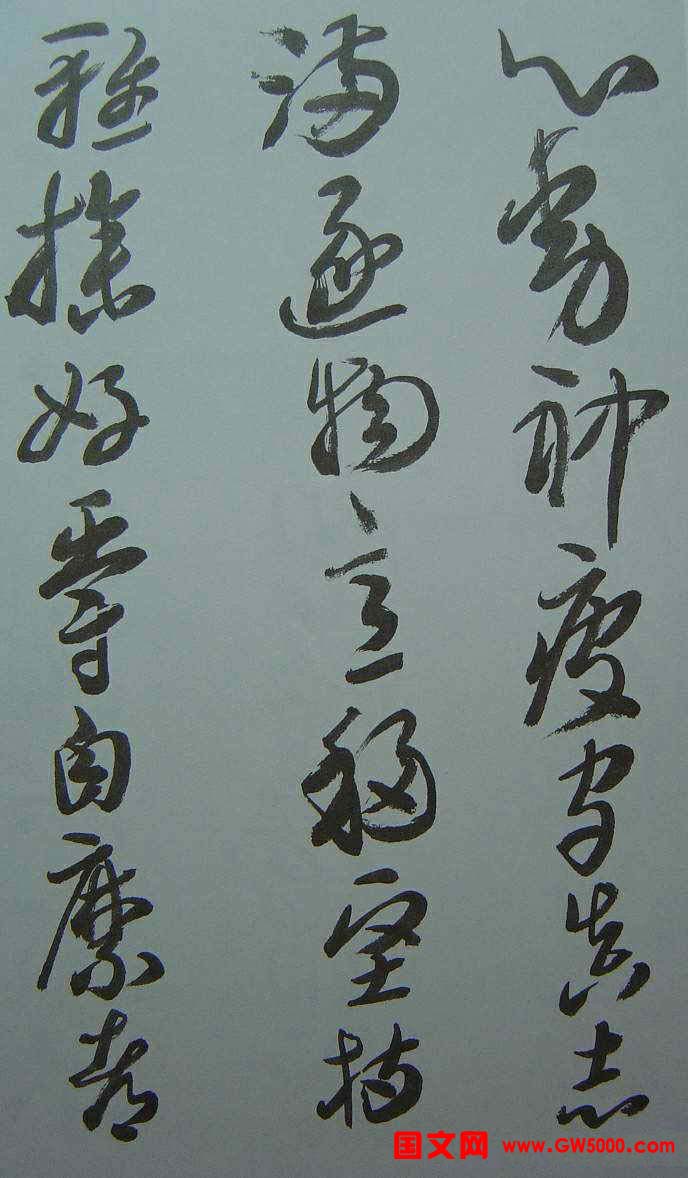 心動神疲守真志
滿逐物意移堅持
雅操好爵自縻都
国文网 www.GW5000.com